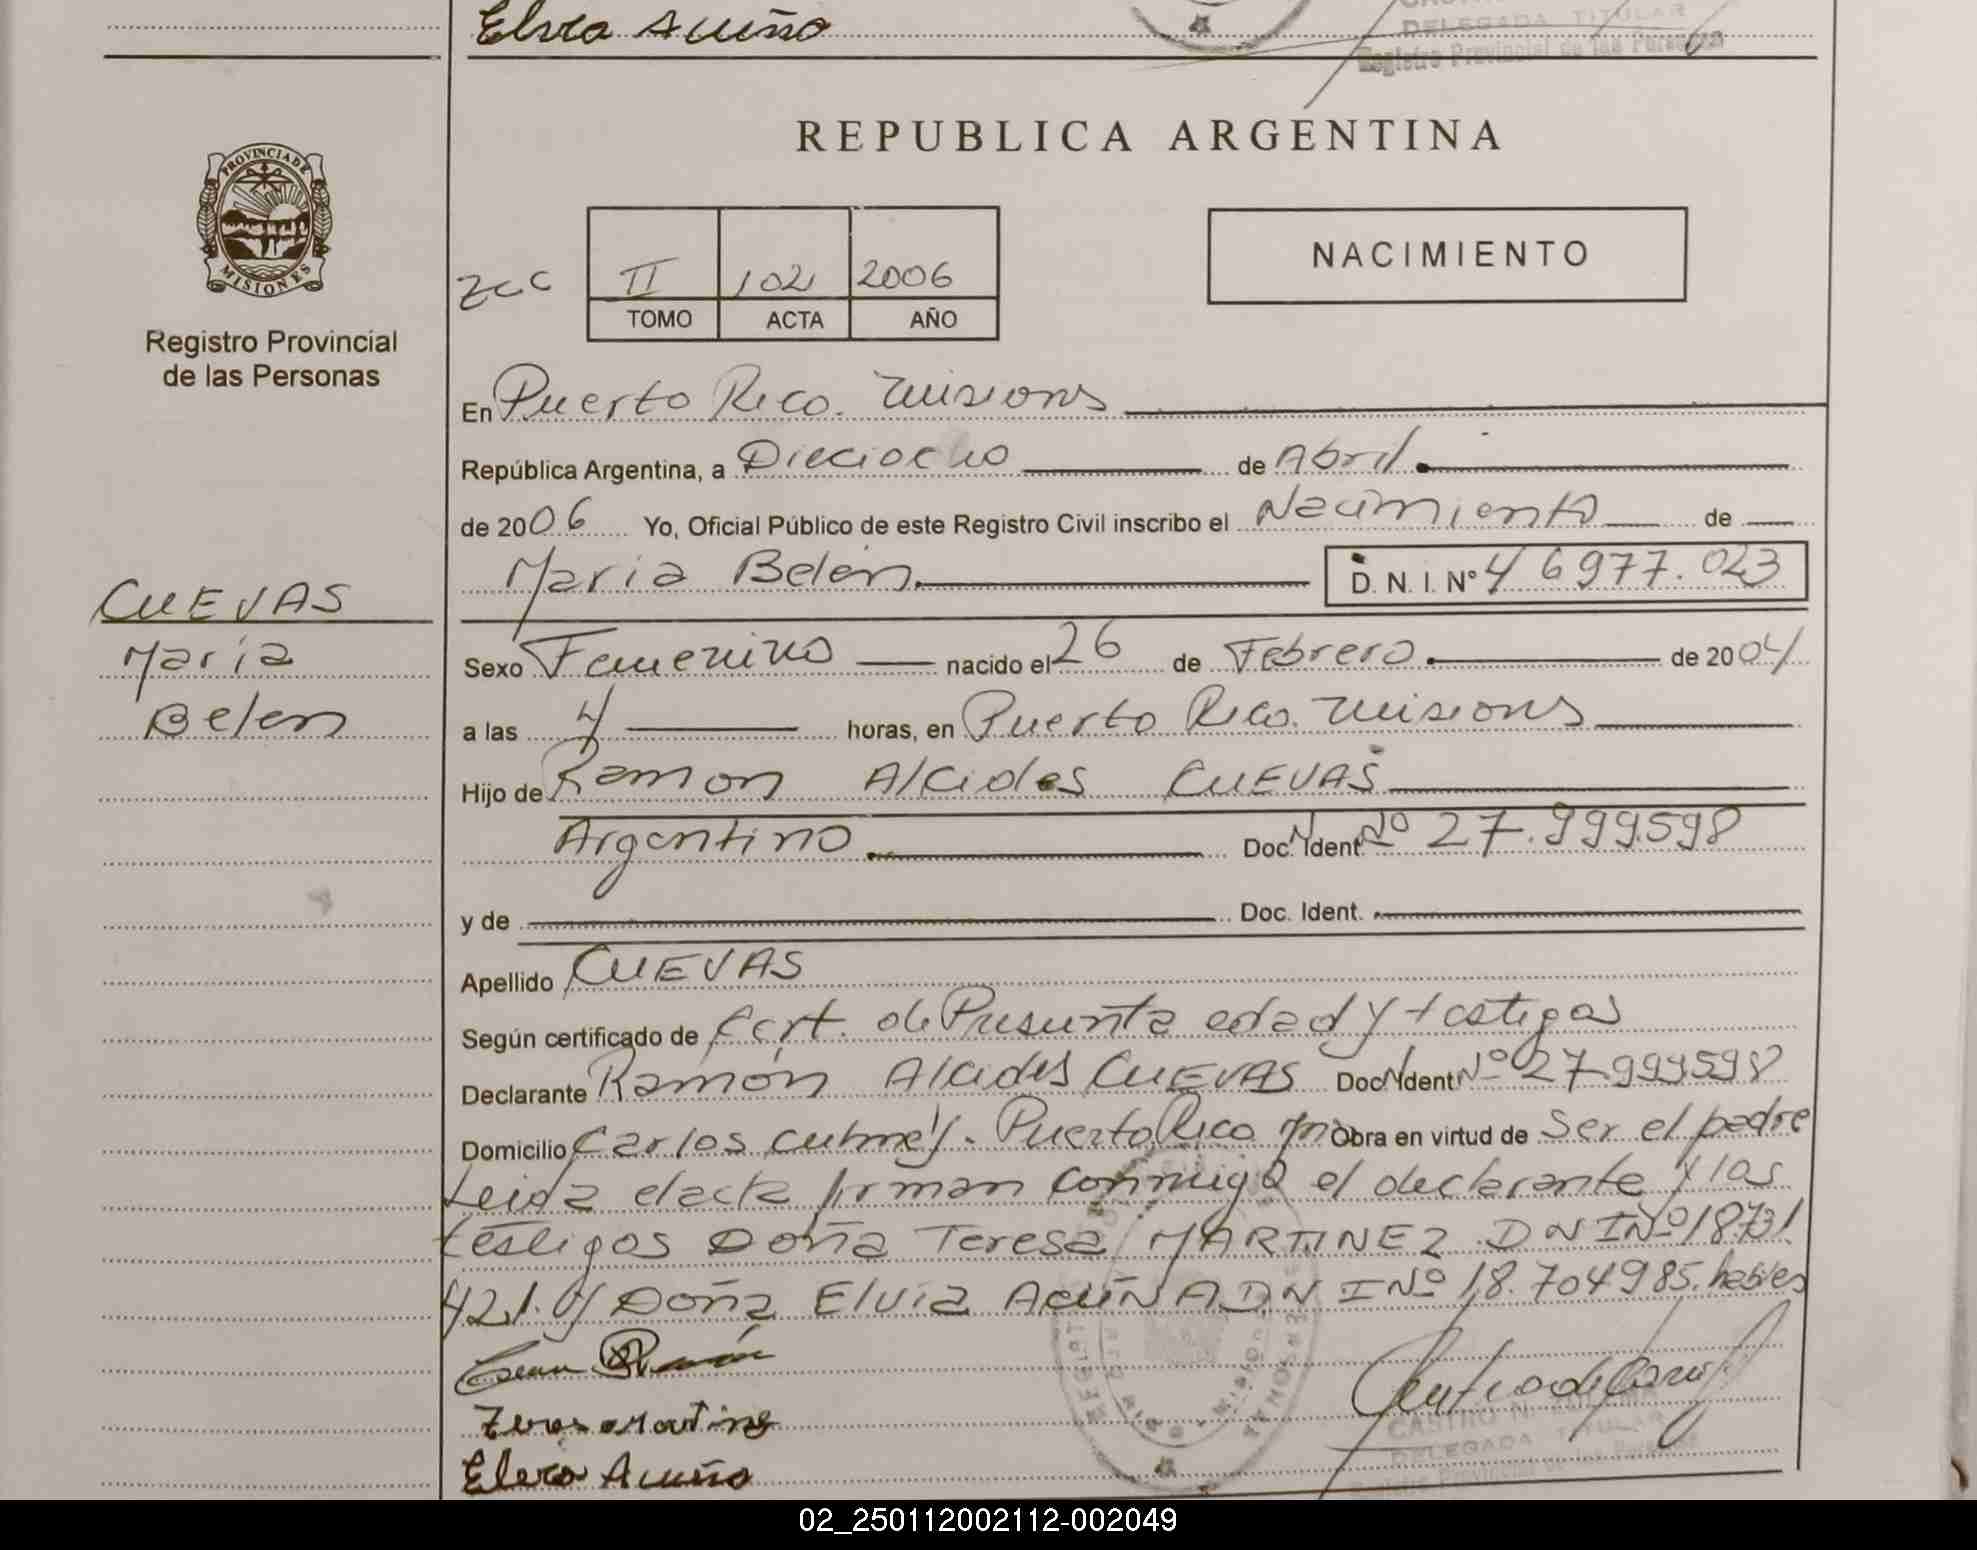 Elvia Acuña
DELEGADA TITULAR
Registro Provincial de las Personas
REPUBLICA ARGENTINA
PROVINCIA DE
MISIONES
NACIMIENTO
II 102 2006
TOMO ACTA AÑO
Registro Provincial
de las Personas
En Puerto Rico. Misiones
República Argentina, a Dieciocho de Abril
de 2006 Yo, Oficial Público de este Registro Civil inscribo el Nacimiento de
Maria Belén D. N. I. Nº 46977.023
CUEVAS
María
Belen
Sexo Femenino nacido el 26 de Febrero de 2004
a las 4 horas, en Puerto Rico. Misiones
Hijo de Ramon Alcides CUEVAS
Argentino Doc. Ident. Nº 27.999.598
y de Doc. Ident.
Apellido CUEVAS
Según certificado de Cert. de Presunta edad y testigos
Declarante Ramón Alcides CUEVAS Doc. Ident. Nº 27.999598
Domicilio Carlos Culmey. Puerto Rico Mnes Obra en virtud de Ser el padre
Leida el acta firman conmigo el declarante y los
testigos Doña Teresa MARTINEZ DNI Nº 18731.
421. y Doña Elvia ACUÑA DNI Nº 18.704985. habiles
Teresa Martinez
CASTRO N.
DELEGADA TITULAR
Elvia Acuña
Registro Provincial de las Personas
02_250112002112-002049